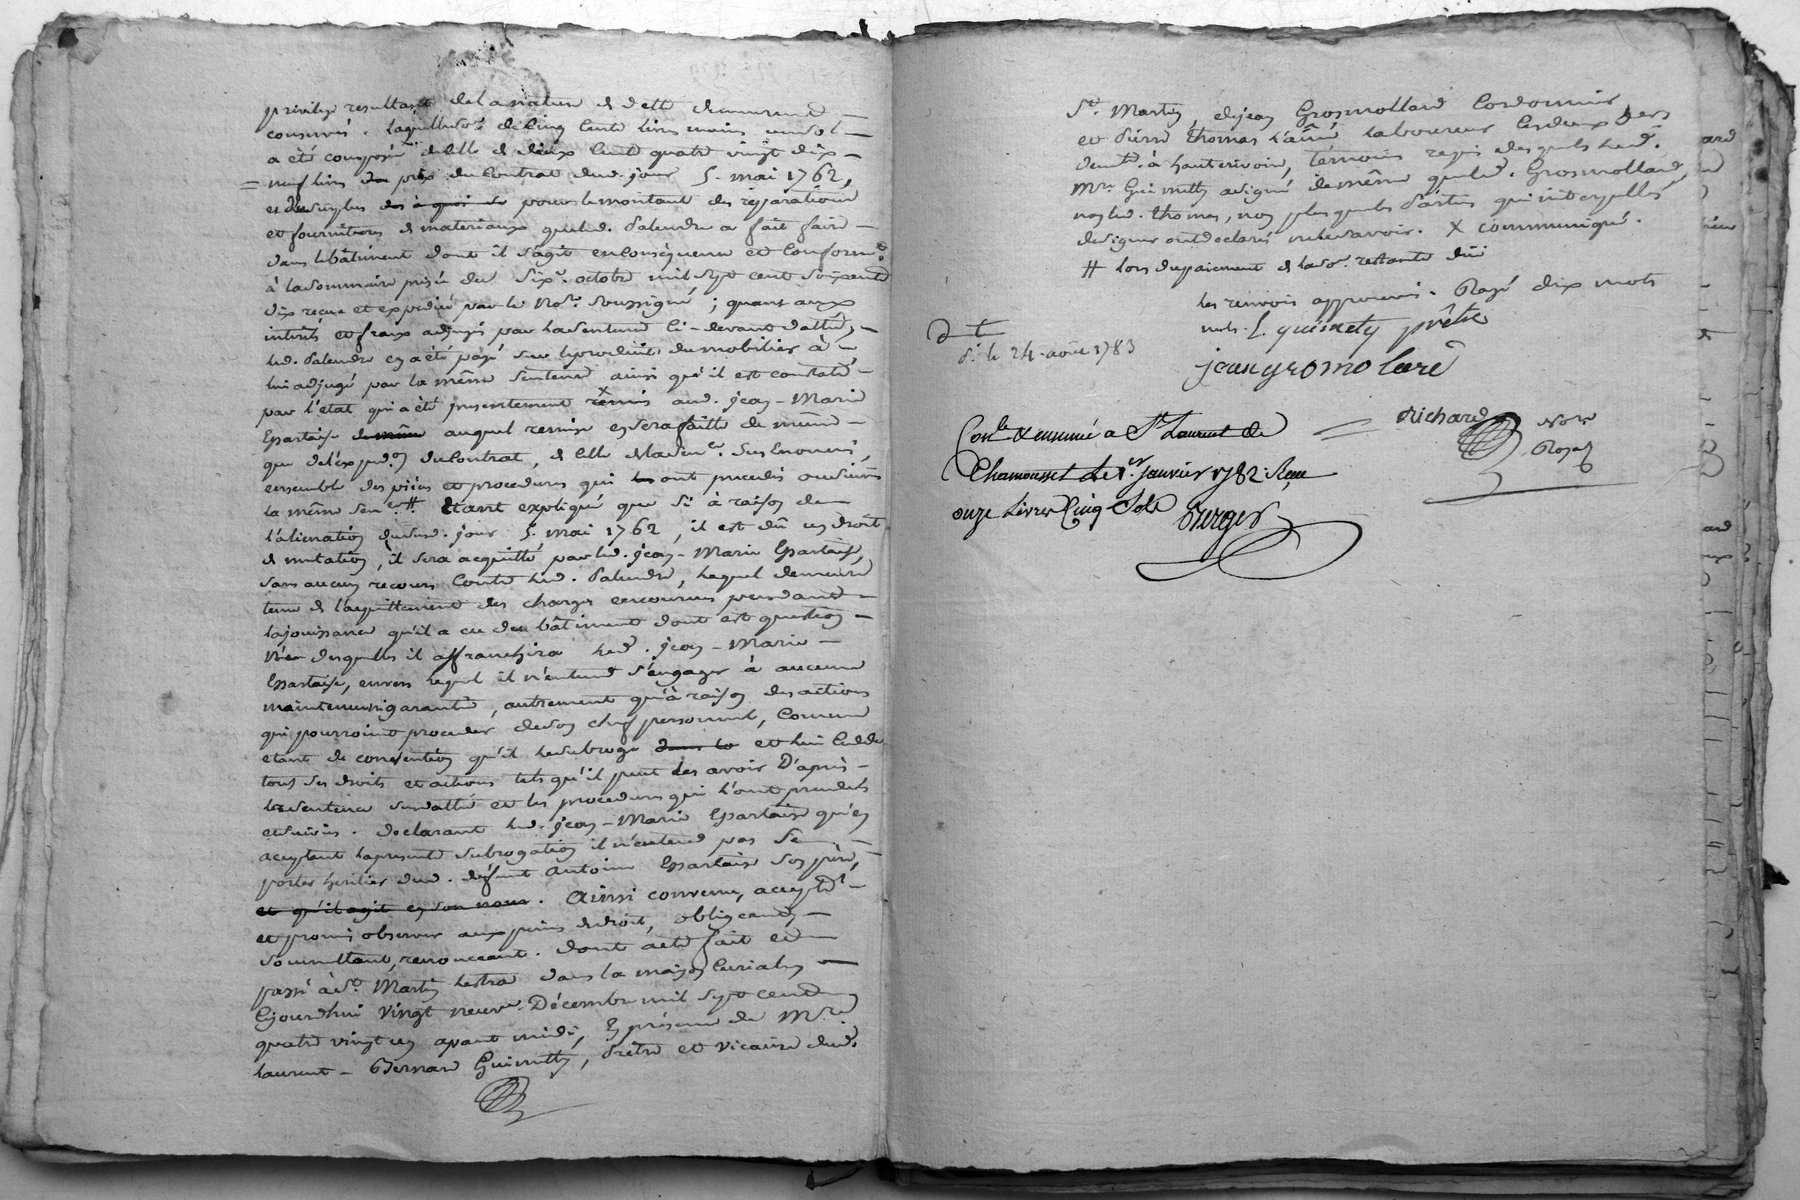 privilege resultant de la nature de dette demeurant
conservé. Laquelle so.e de cinq cents livres moins un sol
a été composée de celle de deux cent quatre vingt dix
neuf livres prix du contrat dud. jour 5. mai 1762,
et du surplus pour le montant des réparations
et fournitures de materiaux que led. Palandre a fait faire
dans le bâtiment dont il s'agit en conséquence et conform.t
à la sommaire prisée du six.e octobre mil sept cent soixante
dix reçue et expediée par le No.re soussigné ; quant aux
interêts et fraix adjugés par la sentence ci-devant dattée,
led. Palandre en a été payé sur le produit du mobilier à
lui adjugé par la même sentence ainsi qu'il est constaté
par l'état qui a été presentement remis aud. jean-Marie
Epartaise auquel remise en sera faitte de même
que de l'expéd.on du contrat, de celle de la sen.ce sus enoncés,
ensemble des piéces et procedures qui ont precedés ou suivis
la même sen.ce # Etant expliqué que si à raison de
l'alienation dud. jour 5. mai 1762, il est dû un droit
de mutation, il sera acquitté par led. jean-Marie Epartaise,
sans aucun recours contre led. Palandre, lequel demeure
tenu de l'acquittement des charges encourues pendant
la jouissance qu'il a eu du bâtiment dont est question
desquelles il affranchira led. jean-Marie
Epartaise, envers lequel il n'entend s'engager à aucune
maintenue ni garantie, autrement qu'à raison des actions
qui pourroient proceder de son chef personnel, comme
etant de convention qu'il le subroge et lui cedde
tous ses droits et actions tels qu'il peut les avoir D'après
la sentence susdattée et les procedures qui l'ont precedés
et suivis. declarant led. jean-Marie Epartaise qu'en
acceptant la presente subrogation il n'entend pas se
porter heritier dud. défunt antoine Epartaise son père,
et qu'il agit en son nom. Ainsi convenu, accepté
et promis observer aux peines de droit, obligeant,
soumettant, renonceant. dont acte fait et
passé à S.t Martin Lestra dans la maison curiale
Cejourdhui vingt neuv.e Décembre mil sept cent
quatre vingt un avant midi, En présence de M.re
laurent-Bernard Guimetty, Prêtre et vicaire dud.
S.t Martin, de jean Grosmollard Cordonnier
et Pierre Thomas L'aîné Laboureur les deux
demt. à hauterivoire, Témoins requis desquels led.
M.re Guimetty a signé de même que led. Grosmollard,
non led. thomas, non plus que les Parties qui interpellés
de signer ont declaré ne le savoir. X communiqué.
# lors du paiement de la so.e restante due
les renvois approuvés. Rayé dix mots
nuls. L. guimety prêtre
jean gromolare
D t
P.r le 24. août 1783
Richard No.re
Royal
Con.lé & insinué a S.t Laurent de
Chamousset Le 1.er janvier 1782. Reçu
onze Livres Cinq Sols
Berger